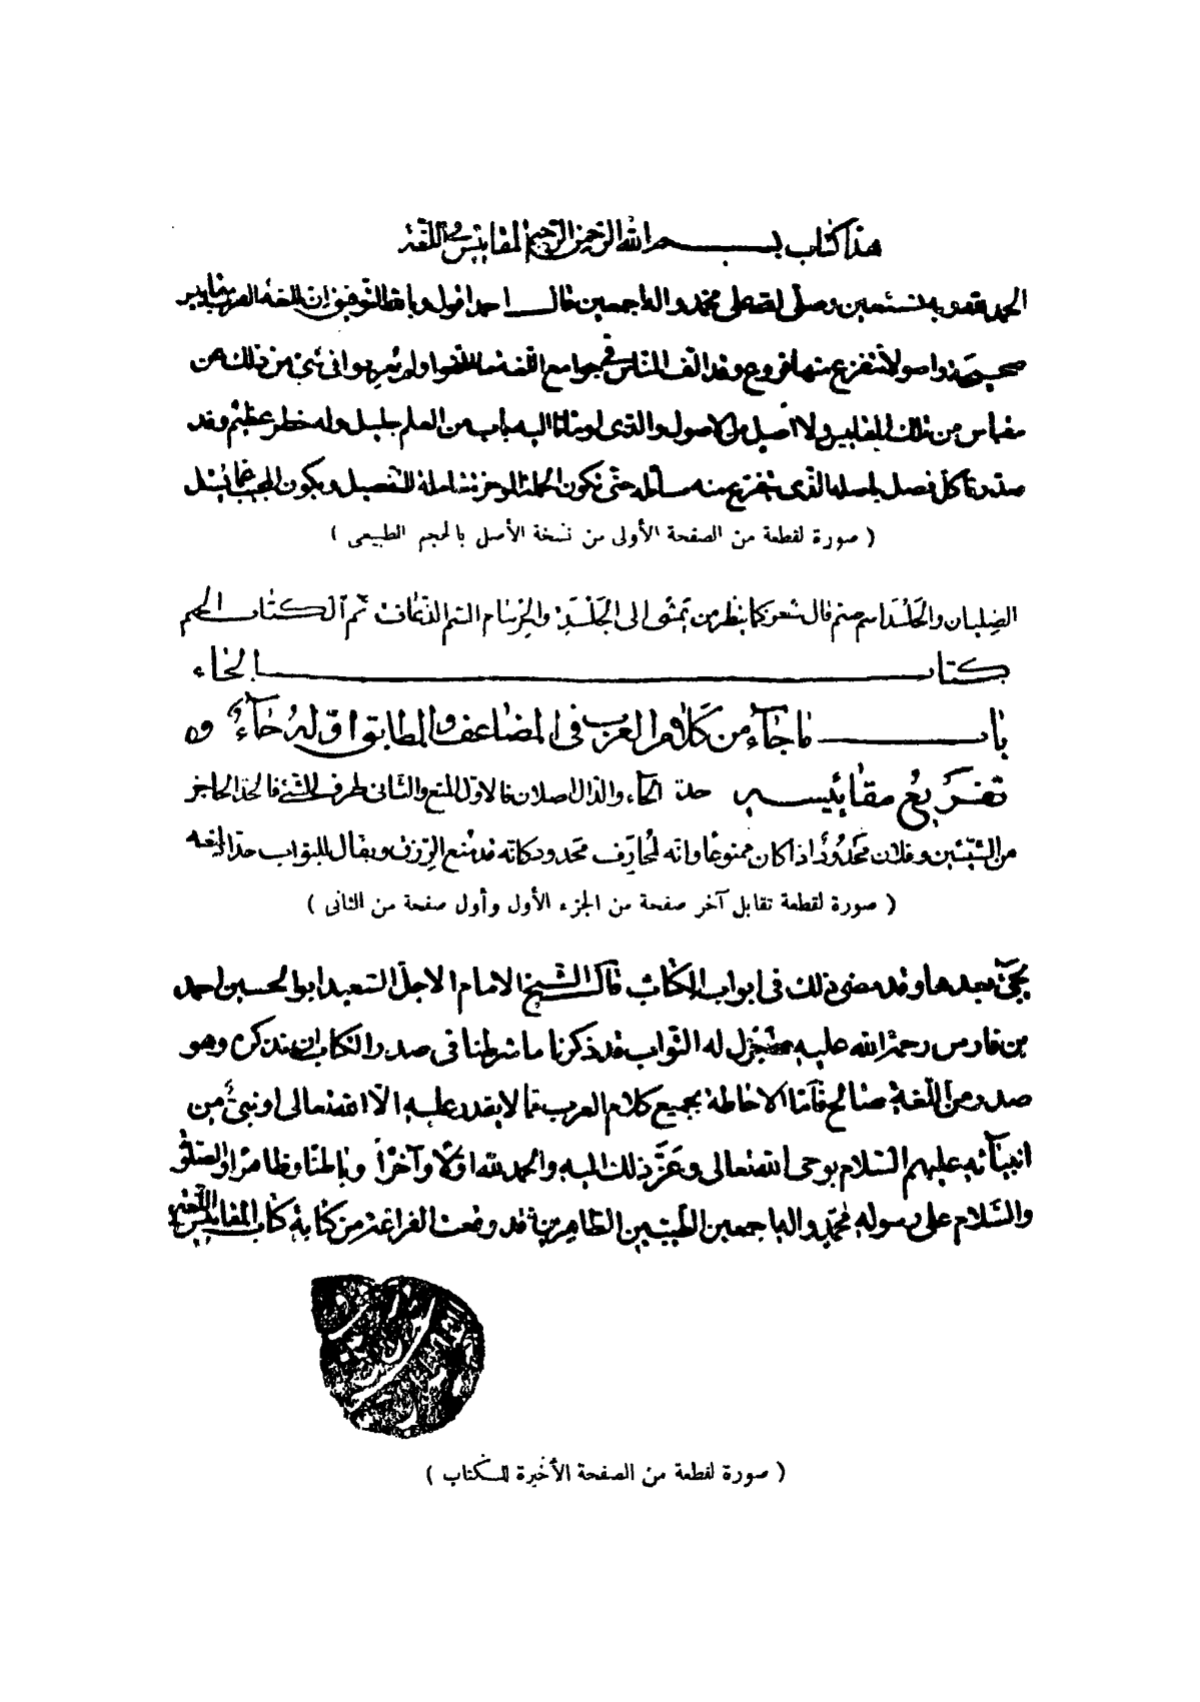 هذا كتاب بسم الله الرحمن الرحيم المقاييس في اللغة
الحمد لله وبه نستعين وصلى الله على محمد واله اجمعين قال احمد اقول وبالله التوفيق ان للغة العرب مقاييس
صحيحة واصولا تتفرع منها فروع وقد الف الناس في جوامع اللغة ما الفوا ولم يعربوا في شئ من ذلك عن
مقياس من تلك المقاييس ولا اصل من الاصول والذى اومأنا اليه باب من العلم جليل وله خطر عظيم وقد
صدرنا كل فصل باصله الذى يتفرع منه مسائله حتى تكون الجملة الموجزة شاملة للتفصيل ويكون المجيب عما يسئل
( صورة لقطعة من الصفحة الأولى من نسخة الأصل بالحجم الطبيعى )
الصلبان والحلسد اسم صنم قال شعر كما بيقر من يمشى الى الجلسد والجرسام السم الذعاف تم الكتاب الجيم
كتاب الحاء
باب ما جاء من كلام العرب في المضاعف والمطابق اوله حاء و
تفريع مقاييسه حد الحاء والدال اصلان فالاول المنع والثانى طرف الشئ فالحد الحاجز
من الشيئين وفلان محدود اذا كان ممنوعا وانه لمحارف محدود كانه قد منع الرزق ويقال للبواب حداد لمنعه
( صورة لقطعة تقابل آخر صفحة من الجزء الأول وأول صفحة من الثانى )
يجئ بعدها وقد مضى ذلك فى ابواب الكتاب قال الشيخ الامام الاجل السعيد ابو الحسين احمد
بن فارس رحمة الله عليه له الثواب قد ذكرنا ما شرطنا فى صدر الكتاب ان نذكره وهو
صدر من اللغة صالح فاما الاحاطة بجميع كلام العرب مما لا يقدر عليه الا الله تعالى او نبى من
انبيآئه عليهم السلام بوحى الله تعالى وعز ذلك اليه والحمد لله اولا وآخرا وباطنا وظاهرا والصلوة
والسلام على رسوله محمد واله اجمعين الطيبين الطاهرين قد وقعت الفراغة من كتابة كتاب المقاييس اللغة
( صورة لقطعة من الصفحة الأخيرة للكتاب )